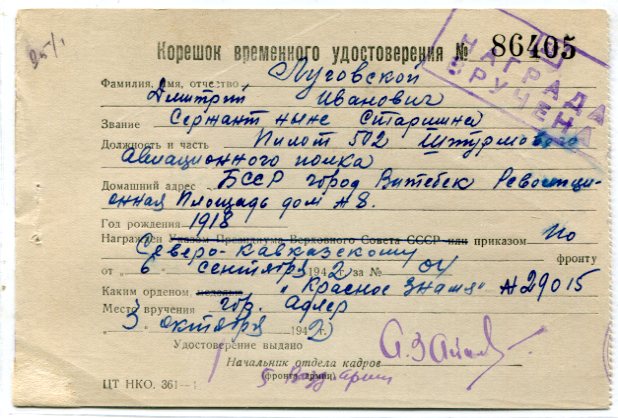 25/1
Корешок временного удостоверения № 86405
НАГРАДА
ВРУЧЕНА
Фамилия, имя, отчество Луговской
Дмитрий Иванович
Звание Сержант ныне Старшина
Должность и часть Пилот 502 Штурмового
Авиационного полка
Домашний адрес БССР город Витебск Революци-
онная Площадь дом №8.
Год рождения 1918
Награжден Указом Президиума Верховного Совета СССР или приказом по
Северо-Кавказскому фронту
от „6" сентября 1942 за № 04
Каким орденом, медалью „Красное Знамя" №29015
Место вручения гор. Адлер
„3" октября 1942
Удостоверение выдано
Начальник отдела кадров
(фронта, армии) 5 Возд Армии
ЦТ НКО. 361—4